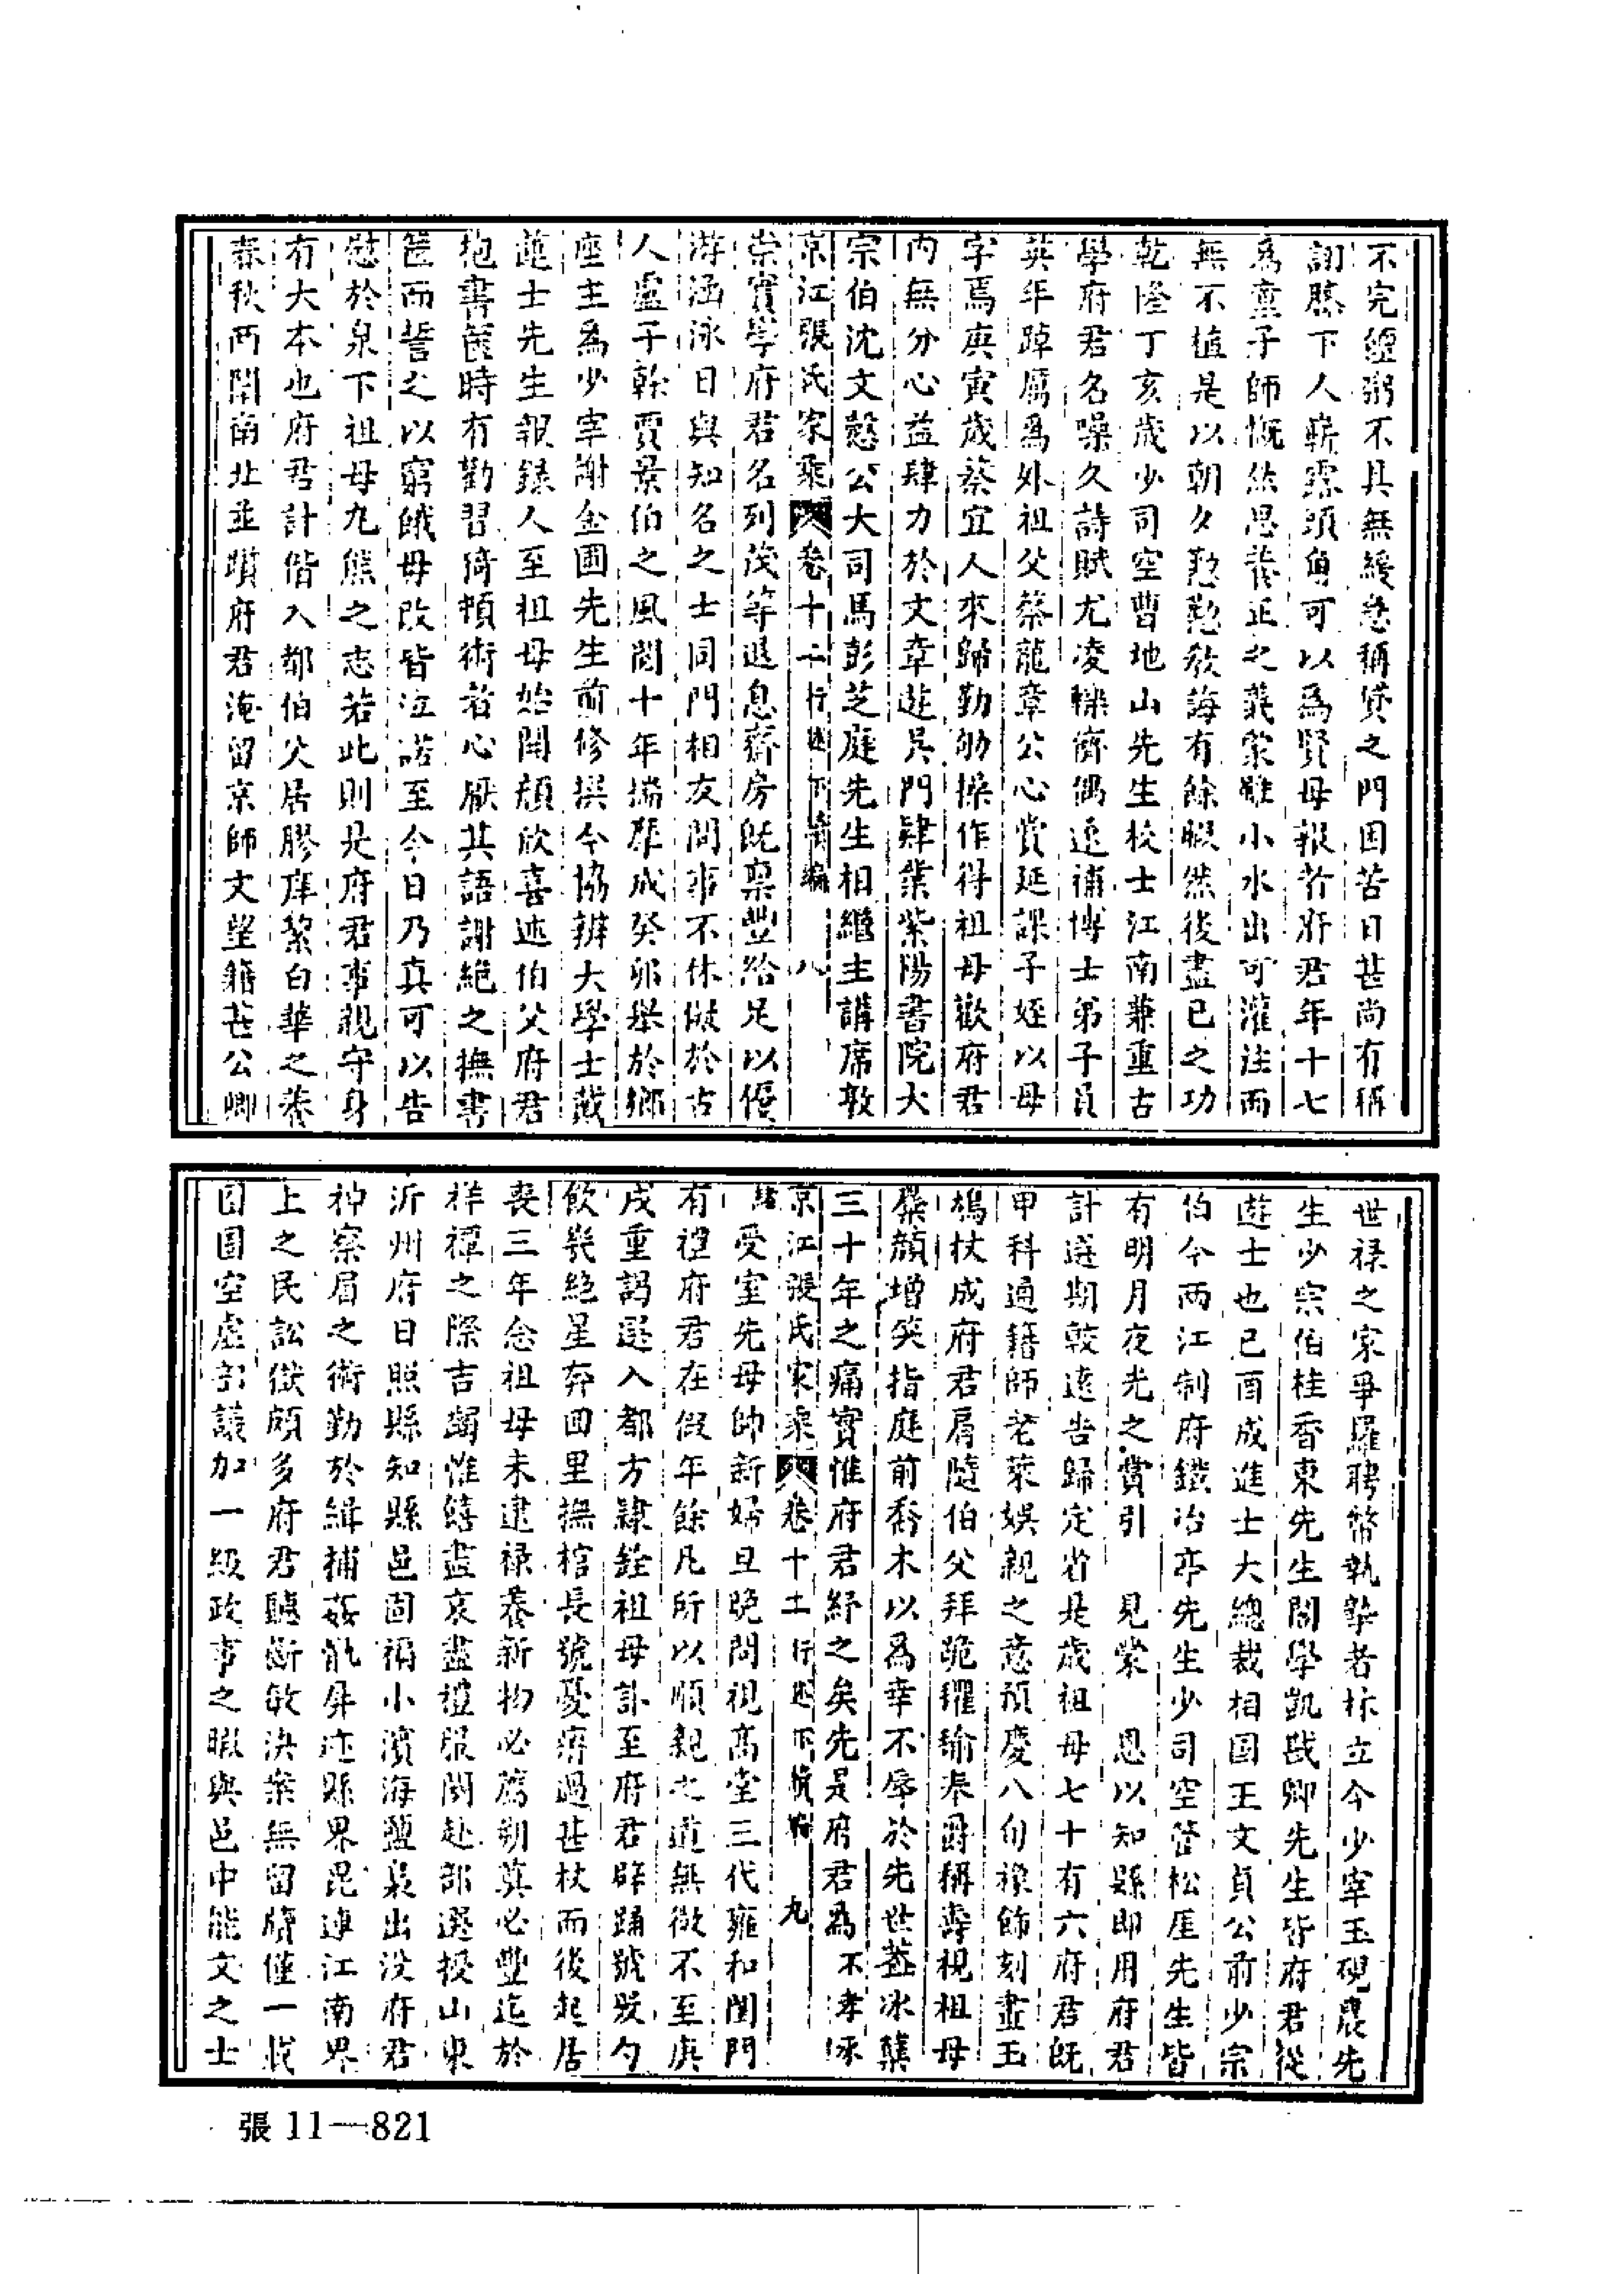 不完饘粥不具無緩急稱貸之門困苦日甚尚有稱
詡膝下人嶄露頭角可以爲賢母報者府君年十七
爲童子師慨然思養正之義蒙雖小水出可灌注而
無不植是以朝夕懃懃敎誨有餘暇然後盡已之功
乾隆丁亥歲少司空曹地山先生校士江南兼重古
學府君名噪久詩賦尤凌轢儕偶遂補博士弟子員
英年踔厲爲外祖父蔡龍章公心賞延課子姪以母
字焉庚寅歲蔡宜人來歸勤劬操作得祖母歡府君
內無分心益肆力於文章遊吳門肄業紫陽書院大
宗伯沈文慤公大司馬彭芝庭先生相繼主講席敦
京江張氏家乘 卷十二行述下黃編 八
崇實學府君名列茂等退息齋房旣稟豐給足以優
游涵泳日與知名之士同門相友問事不休倣於古
人盧子幹賈景伯之風閱十年揣摩成癸卯舉於鄉
座主爲少宰謝金圃先生前修撰今協辦大學士戴
蓮士先生報錄人至祖母始開顏欣喜述伯父府君
抱書篋時有勸習猗頓術者心厭其語謝絕之撫書
篋而誓之以窮餓毋改皆泣諾至今日乃真可以告
慰於泉下祖母九熊之志若此則是府君事親守身
有大本也府君計偕入都伯父居膠庠絜白華之養
春秋兩闈南北並躓府君淹留京師文望籍甚公卿
世祿之家爭羅聘幣執摯者林立今少宰玉硯農先
生少宗伯桂香東先生閣學凱戡卿先生皆府君從
遊士也己酉成進士大總裁相國王文貞公前少宗
伯今兩江制府鐵冶亭先生少司空管松厓先生皆
有明月夜光之賞引 見蒙 恩以知縣即用府君
計選期較遠告歸定省是歲祖母七十有六府君旣
甲科通籍師老萊娛親之意預慶八旬橡飾刻畫玉
鳩杖成府君肩隨伯父拜跪擢瑜奉爵稱壽視祖母
槃顏增笑指庭前喬木以爲幸不辱於先世茹冰櫱
三十年之痛實惟府君紓之矣先是府君爲 不孝 琢
京江張氏家乘 卷十二行述下黃編 九
受室先母帥新婦旦晚問視高堂三代雍和閨門
有禮府君在假年餘凡所以順親之道無微不至庚
戌重謁選入都方隸銓祖母訃至府君擗踊號哭勺
飲幾絕星奔回里撫棺長號憂瘠過甚杖而後起居
喪三年念祖母未逮祿養新物必薦朔奠必豐迄於
祥禫之際吉蠲惟饎盡哀盡禮服闋赴部選授山東
沂州府日照縣知縣縣邑固褊小濱海鹽梟出沒府君
神察眉之術勤於緝捕姦宄屏迹縣界毘連江南界
上之民訟獄頗多府君聽斷敏決案無留牘僅一載
囹圄空虛部議加一級政事之暇與邑中能文之士
張 11—821